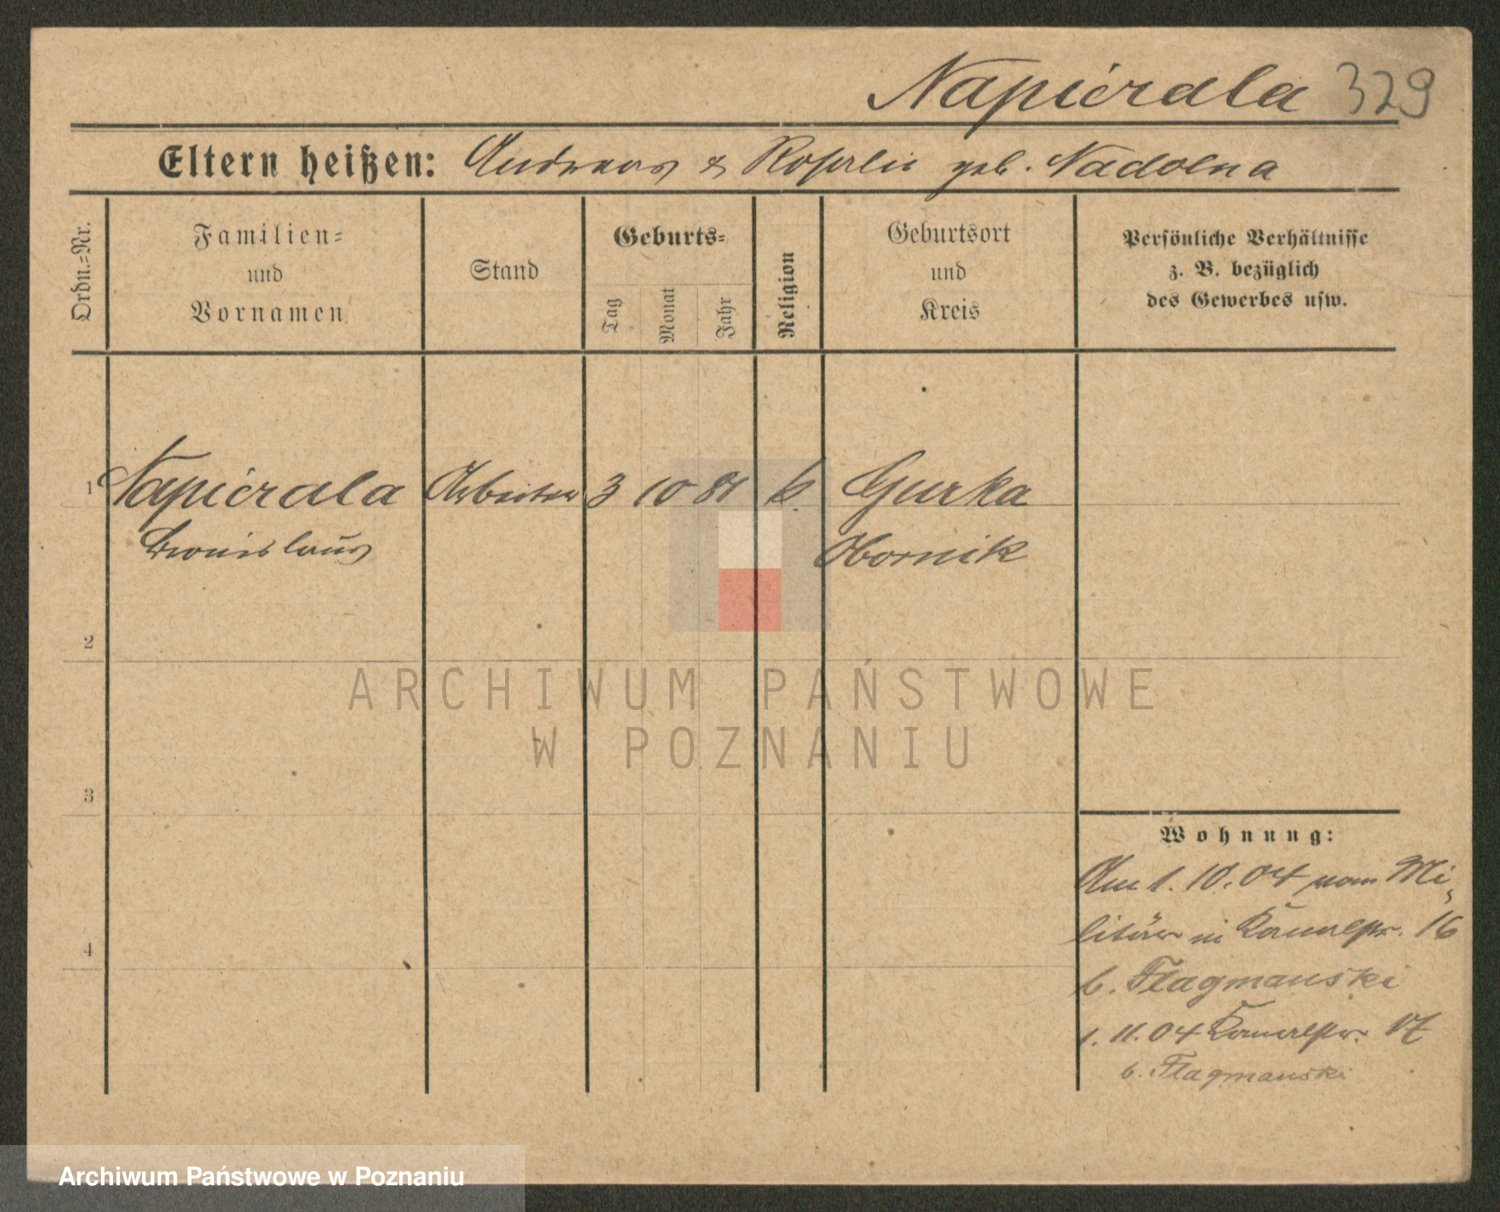 Napierala 329
Eltern heißen: Andreas & Rosalie geb. Nadolna
Ordn.=Nr.
Familien=
und
Vornamen
Stand
Geburts=
Tag
Monat
Jahr
Religion
Geburtsort
und
Kreis
Persönliche Verhältnisse
z. B. bezüglich
des Gewerbes usw.
1 Napierala Arbeiter 3 10 81 k Gurka
Bronislaus Obornik
2
3
4
Wohnung:
Am 1.10.04 vom Mi-
litär in Kanalstr. 16
b. Flagmanski
1.11.04 Kanalstr. 17
b. Flagmanski
ARCHIWUM PAŃSTWOWE
W POZNANIU
Archiwum Państwowe w Poznaniu